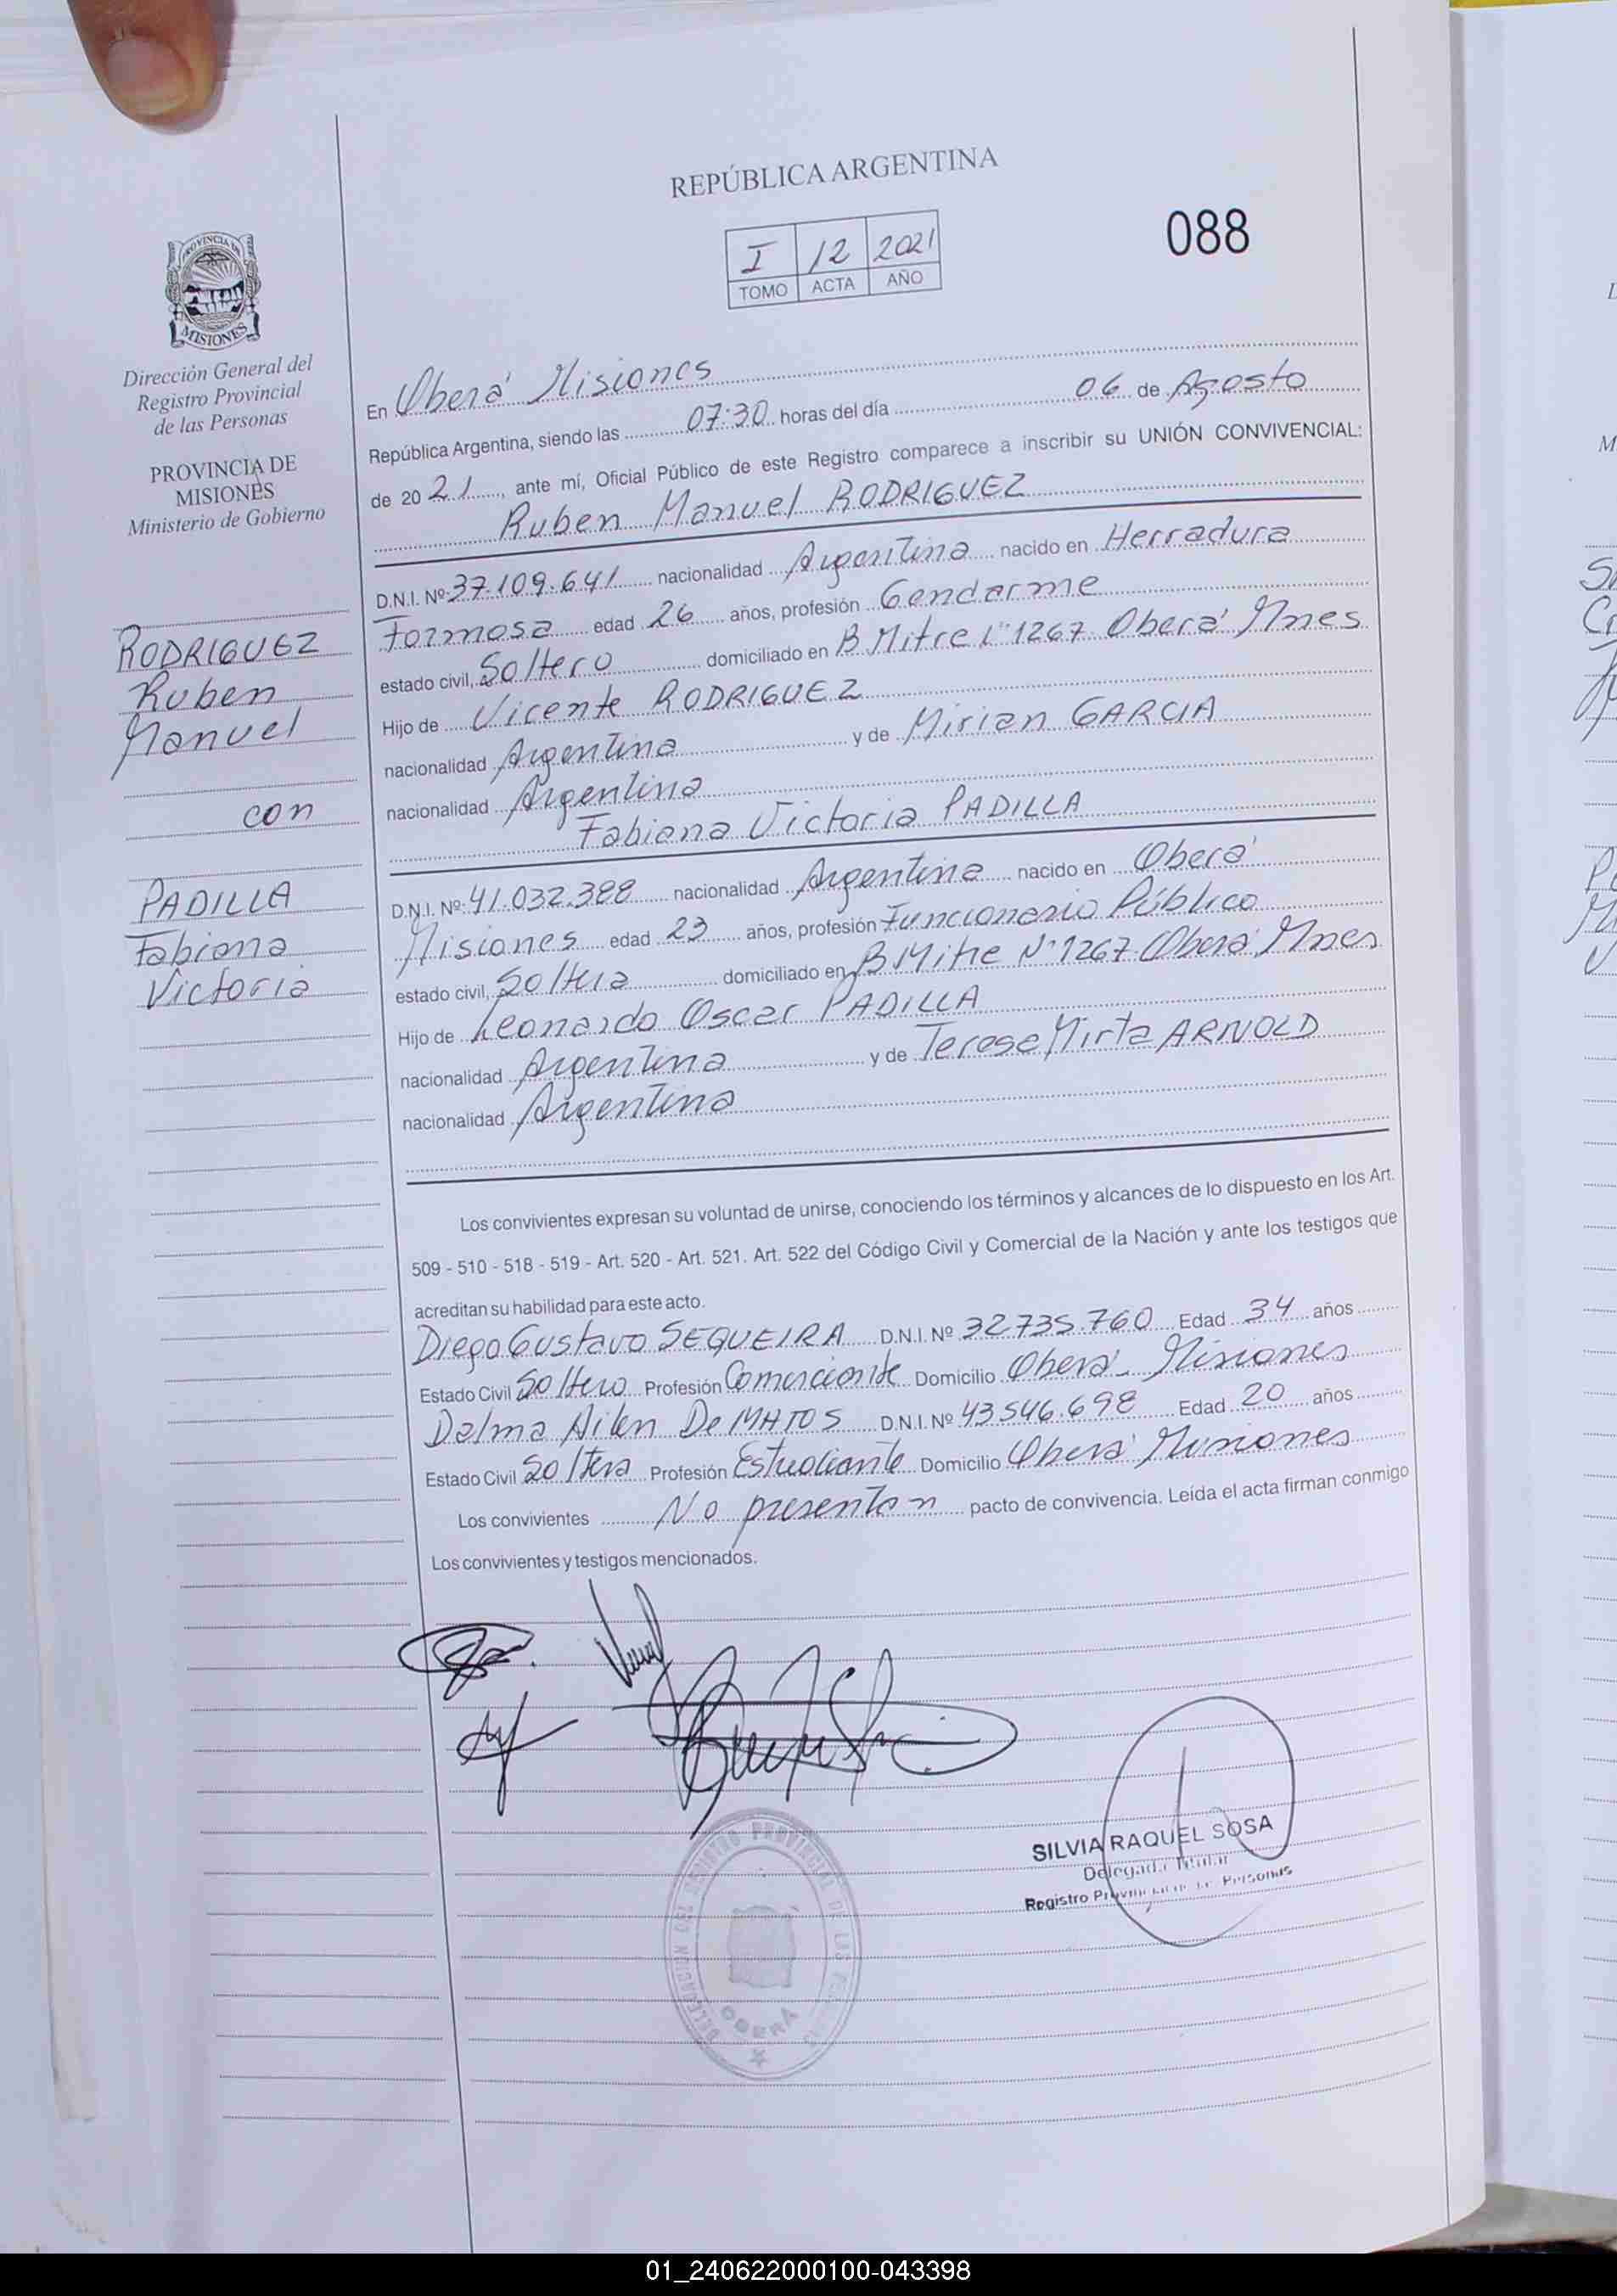 REPÚBLICA ARGENTINA
I 12 2021
TOMO ACTA AÑO
088
PROVINCIA DE
MISIONES
Dirección General del
Registro Provincial
de las Personas
PROVINCIA DE
MISIONES
Ministerio de Gobierno
RODRIGUEZ
Ruben
Manuel
con
PADILLA
Fabiana
Victoria
En Oberá Misiones
República Argentina, siendo las 07:30 horas del día 06 de Agosto
de 2021, ante mí, Oficial Público de este Registro comparece a inscribir su UNIÓN CONVIVENCIAL:
Ruben Manuel RODRIGUEZ
D.N.I. Nº 37.109.641 nacionalidad Argentina nacido en Herradura
Formosa edad 26 años, profesión Gendarme
estado civil, Soltero domiciliado en B Mitre 1267 Oberá Mnes
Hijo de Vicente RODRIGUEZ
nacionalidad Argentina y de Mirian GARCIA
nacionalidad Argentina
Fabiana Victoria PADILLA
D.N.I. Nº 41.032.388 nacionalidad Argentina nacido en Oberá
Misiones edad 23 años, profesión Funcionario Público
estado civil, Soltera domiciliado en B Mitre Nº 1267 Oberá Mnes
Hijo de Leonardo Oscar PADILLA
nacionalidad Argentina y de Teresa Mirta ARNOLD
nacionalidad Argentina
Los convivientes expresan su voluntad de unirse, conociendo los términos y alcances de lo dispuesto en los Art.
509 - 510 - 518 - 519 - Art. 520 - Art. 521. Art. 522 del Código Civil y Comercial de la Nación y ante los testigos que
acreditan su habilidad para este acto.
Diego Gustavo SEQUEIRA D.N.I. Nº 32.735.760 Edad 34 años
Estado Civil Soltero Profesión Comerciante Domicilio Oberá - Misiones
Dalma Ailen De MATOS D.N.I. Nº 43.546.698 Edad 20 años
Estado Civil Soltera Profesión Estudiante Domicilio Oberá Misiones
Los convivientes No presentan pacto de convivencia. Leída el acta firman conmigo
Los convivientes y testigos mencionados.
SILVIA RAQUEL SOSA
Delegada Titular
Registro Provincial de las Personas
DELEGACION DEL REGISTRO PROVINCIAL DE LAS PERSONAS
OBERA
01_240622000100-043398